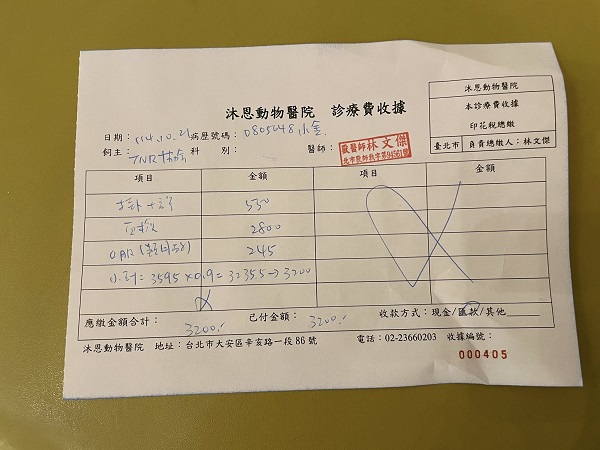 沐恩動物醫院　診療費收據
沐恩動物醫院
本診療費收據
印花稅總繳
臺北市 負責總繳人：林文傑
日期：114.10.21 病歷號碼：0805048小金
飼主：TNR 科　別： 醫師：獸醫師林文傑
項目 金額 項目 金額
掛+診 550
2800
245
小計=3595×0.9=3235.5→3200
應繳金額合計：3200.- 已付金額：3200.- 收款方式：現金/匯款/其他
沐恩動物醫院　地址：台北市大安區辛亥路一段86號　電話：02-23660203　收據編號：
000405